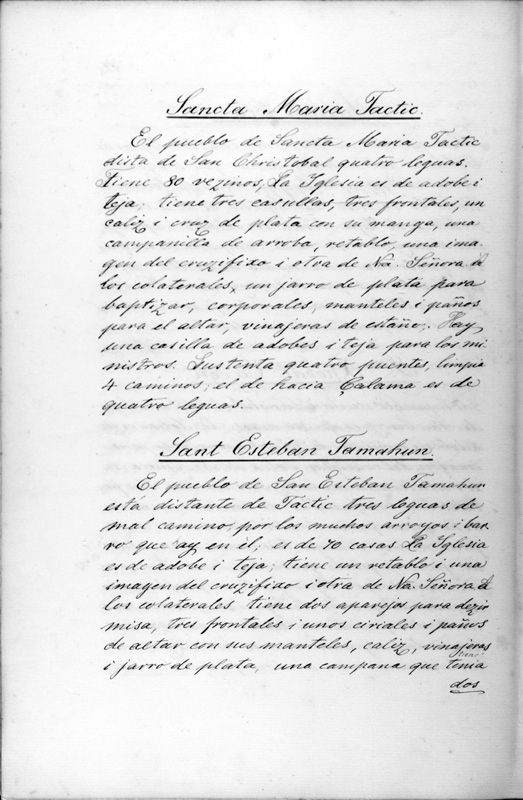 Sancta Maria Tactic.
El pueblo de Sancta Maria Tactic
dista de San Christobal quatro leguas.
Tiene 80 vezinos, La Iglesia es de adobe i
teja; tiene tres casullas, tres frontales, un
caliz i cruz de plata con su manga, una
campanilla de arroba, retablo, una ima-
gen del cruzifixo i otra de Na. Señora. A
los colaterales, un jarro de plata para
baptizar, corporales, manteles i paños
para el altar, vinajeras de estaño. Hay
una casilla de adobes i teja para los mi-
nistros. Sustenta quatro puentes, limpia
4 caminos; el de hacia Çalama es de
quatro leguas.
Sant Esteban Tamahun.
El pueblo de San Esteban Tamahun
está distante de Tactic tres leguas de
mal camino, por los muchos arroyos i bar-
ro que ay en él; es de 70 casas La Iglesia
es de adobe i teja; tiene un retablo i una
imagen del cruzifixo i otra de Na. Señora. A
los colaterales tiene dos aparejos para dezir
misa, tres frontales i unos ciriales i paños
de altar con sus manteles, caliz, vinajeras
i jarro de plata, una campana que tenia
dos